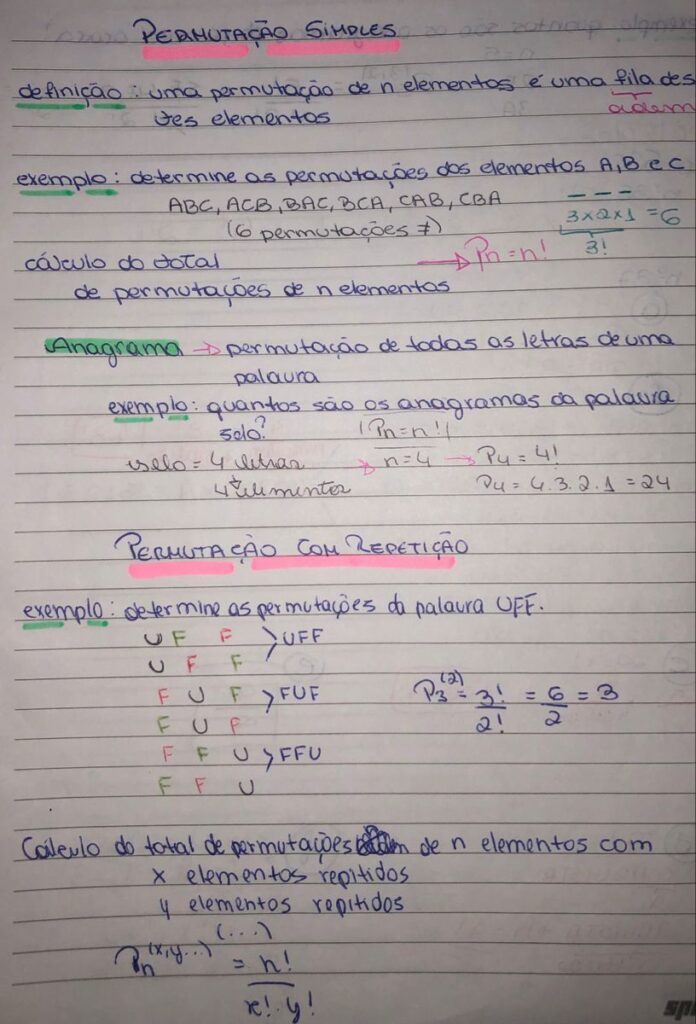 PERMUTAÇÃO SIMPLES
definição: uma permutação de n elementos é uma fila des
tes elementos
ordem
exemplo: determine as permutações dos elementos A, B e C
ABC, ACB, BAC, BCA, CAB, CBA
(6 permutações ≠)
3x2x1 = 6
3!
cálculo do total → Pn = n!
de permutações de n elementos
Anagrama → permutação de todas as letras de uma
palavra
exemplo: quantos são os anagramas da palavra
selo? Pn = n!
selo = 4 letras → n = 4 → P4 = 4!
4 elementos P4 = 4.3.2.1 = 24
PERMUTAÇÃO COM REPETIÇÃO
exemplo: determine as permutações da palavra UFF.
U F F > UFF
U F F
F U F > FUF
F U F
F F U > FFU
F F U
P3^(2) = 3!/2! = 6/2 = 3
Cálculo do total de permutações de n elementos com
x elementos repitidos
y elementos repitidos
(...)
Pn^(x,y...) = n!
x! . y!